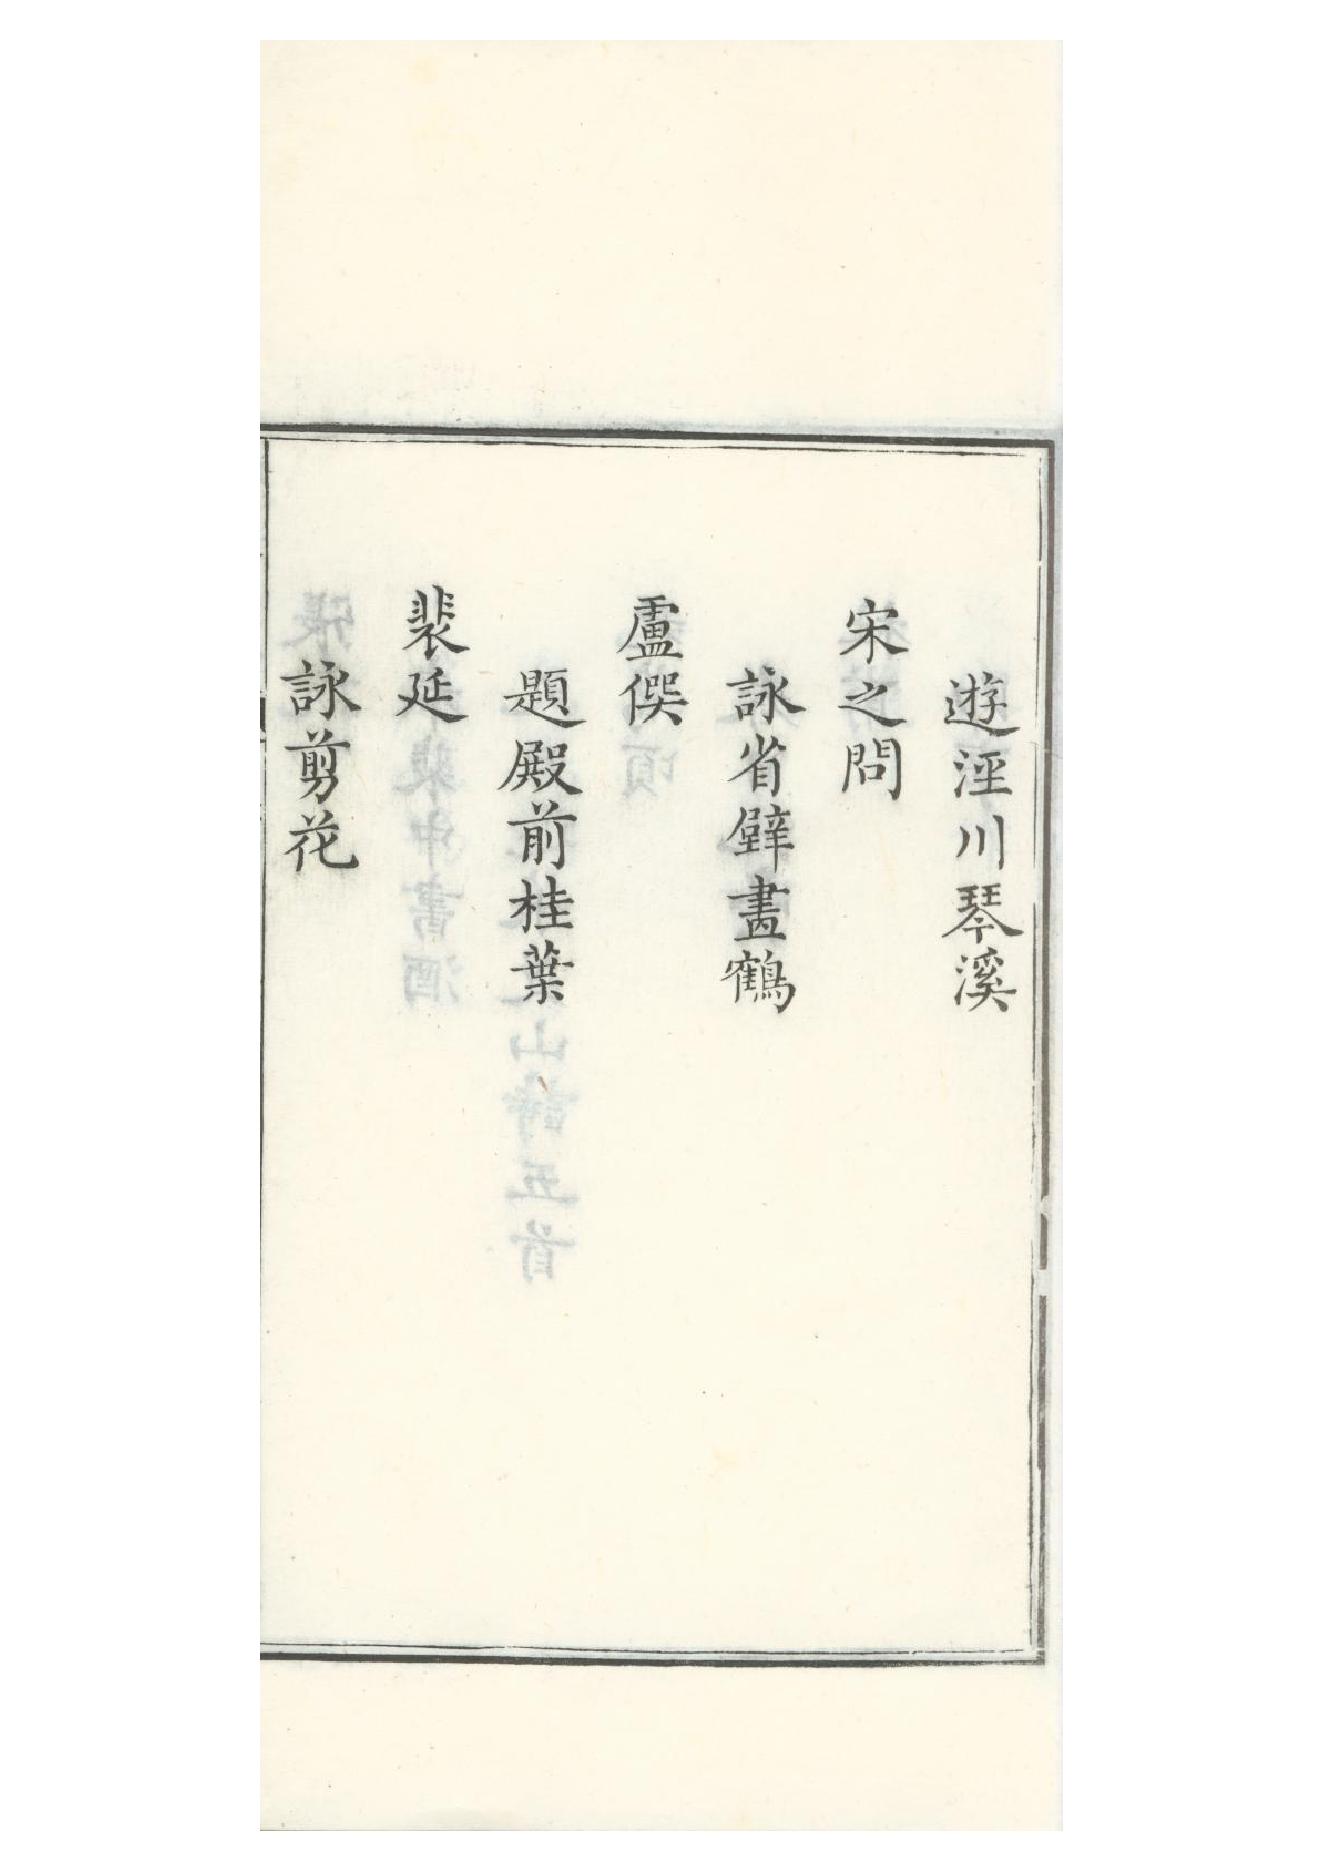 遊涇川琴溪
宋之問
詠省壁畫鶴
盧僎
題殿前桂葉
裴延
詠剪花